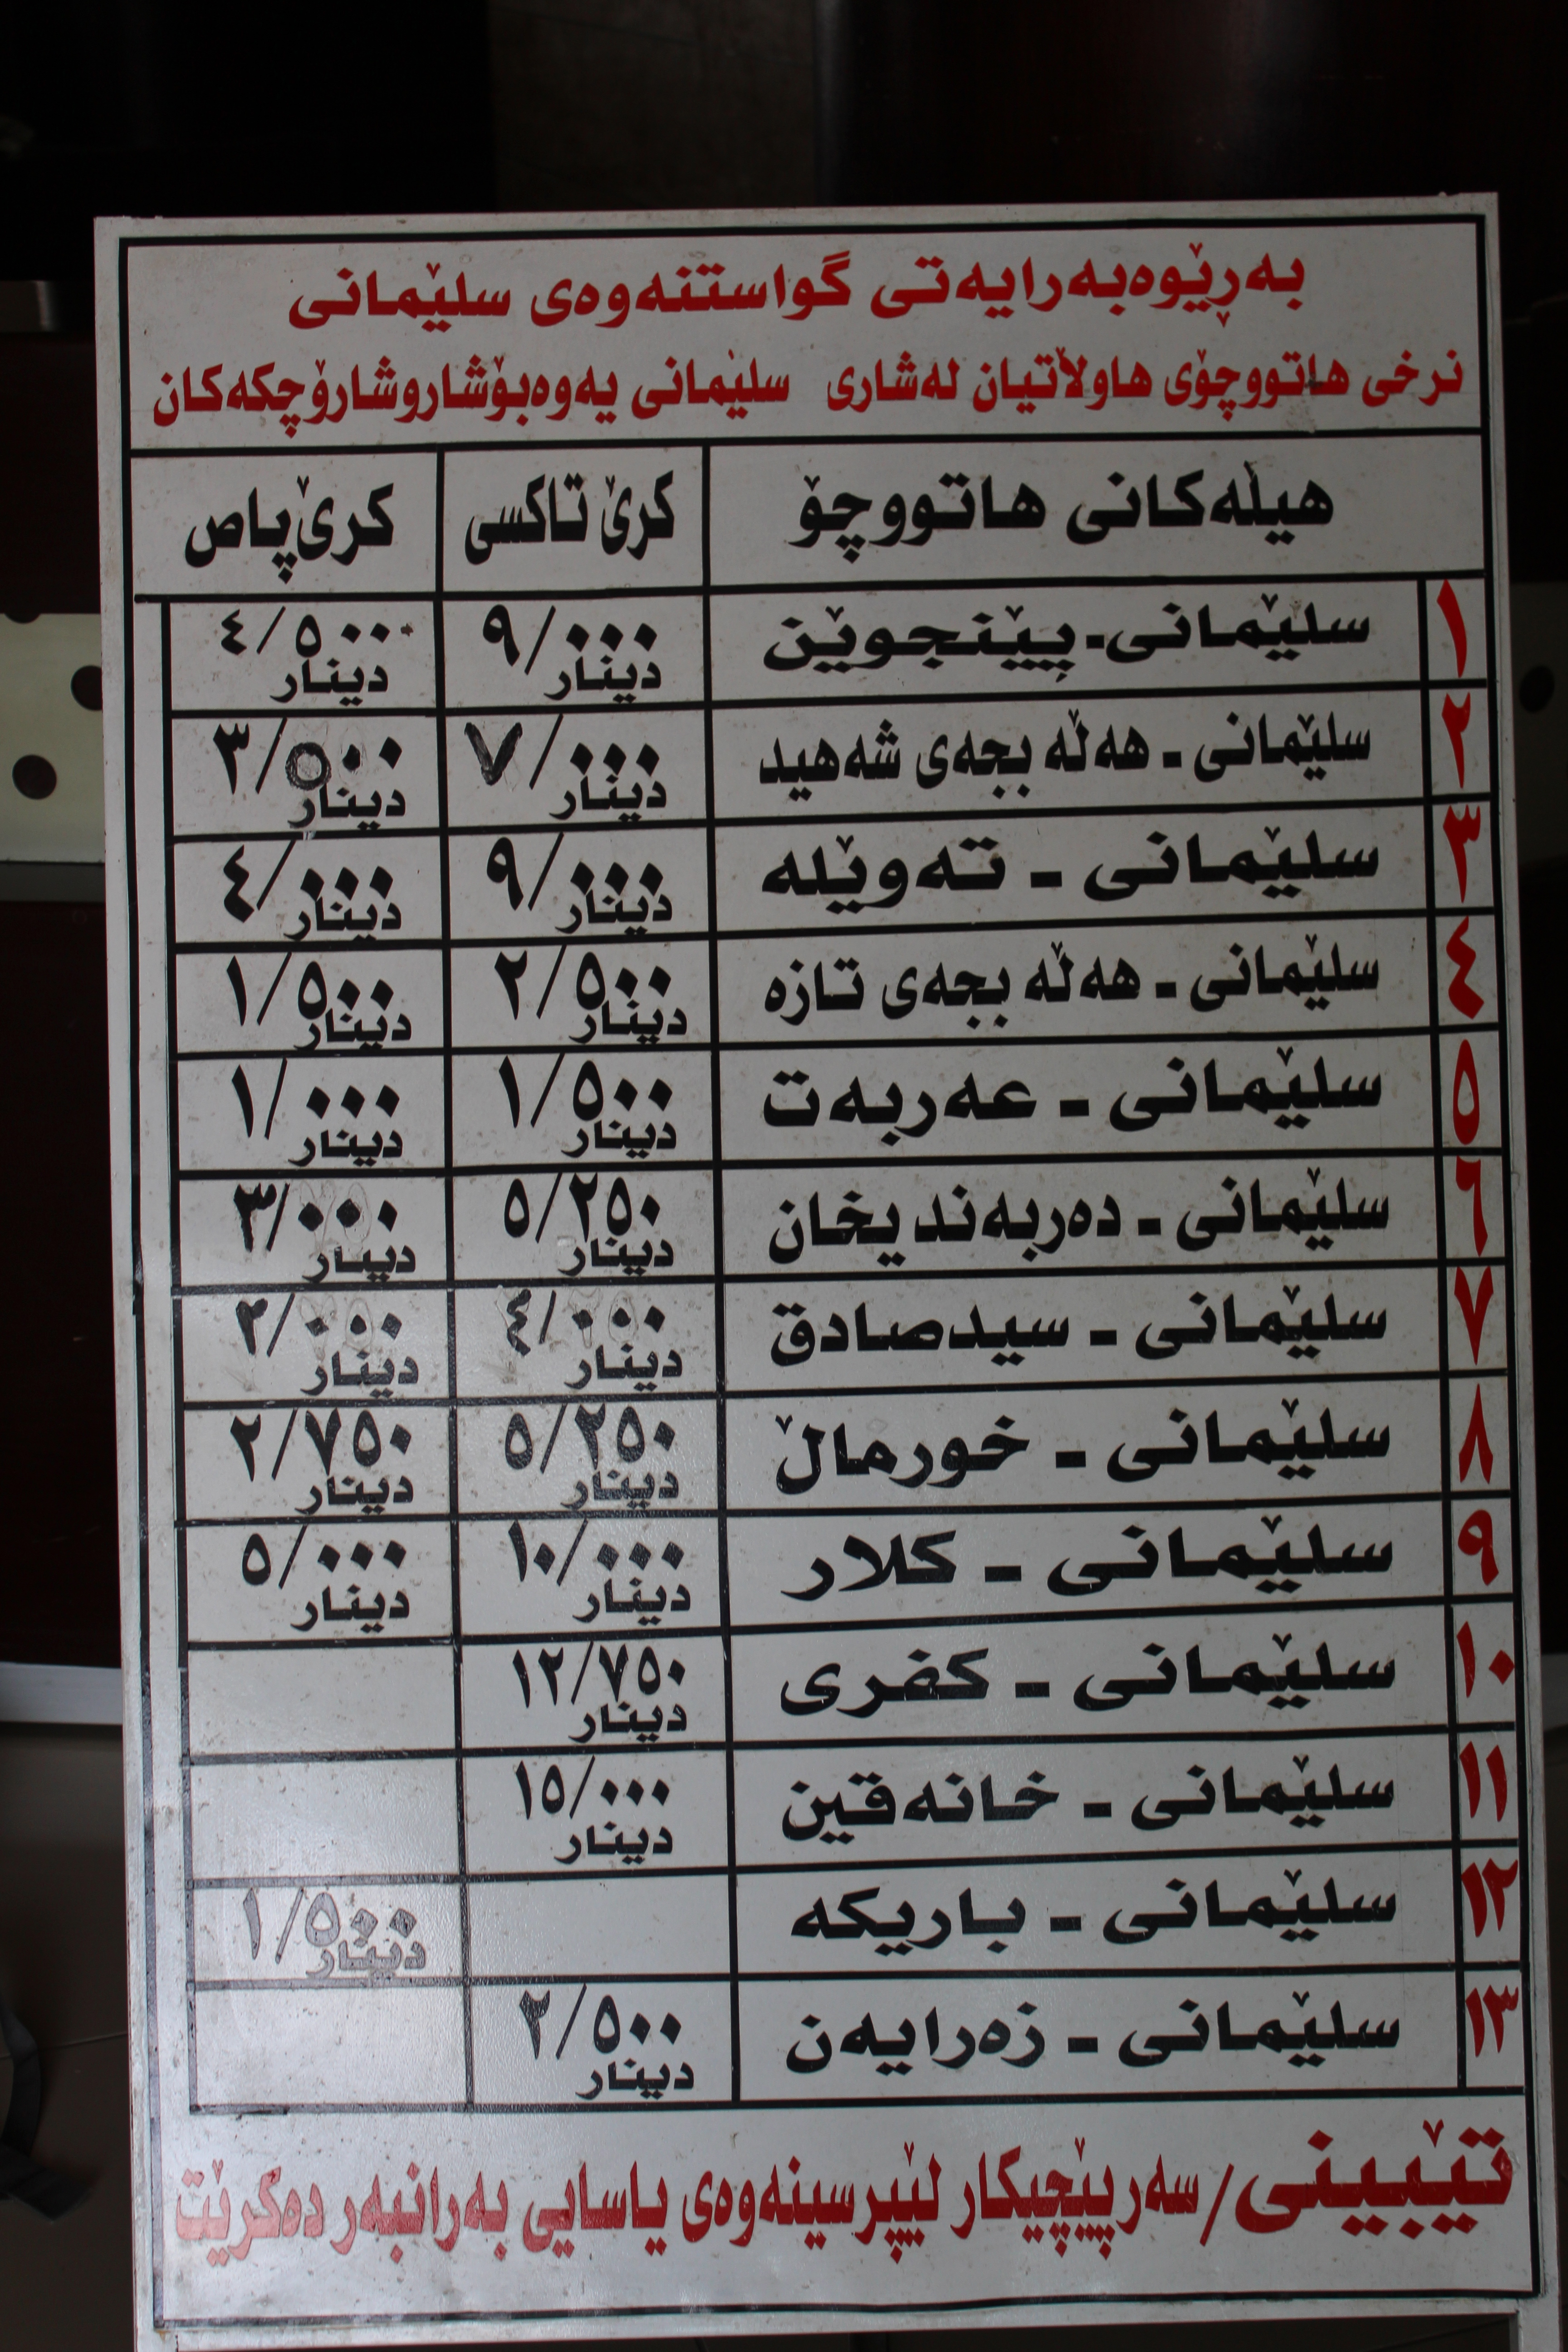 بەڕێوەبەرایەتی گواستنەوەی سلێمانی
نرخی هاتووچۆی هاوڵاتیان لەشاری سلێمانی یەوەبۆشاروشارۆچکەکان
هێڵەکانی هاتووچۆ کرێ تاکسی کرێ پاص
١ سلێمانی - پێنجوێن ٩/٠٠٠ دینار ٤/٥٠٠ دینار
٢ سلێمانی - هەڵە بجەی شەهید ٧/٠٠٠ دینار ٣/٥٠٠ دینار
٣ سلێمانی - تەوێلە ٩/٠٠٠ دینار ٤/٠٠٠ دینار
٤ سلێمانی - هەڵە بجەی تازە ٢/٥٠٠ دینار ١/٥٠٠ دینار
٥ سلێمانی - عەربەت ١/٥٠٠ دینار ١/٠٠٠ دینار
٦ سلێمانی - دەربەندیخان ٥/٢٥٠ دینار ٣/٠٠٠ دینار
٧ سلێمانی - سیدصادق ٤/٠٠٠ دینار ٢/٠٠٠ دینار
٨ سلێمانی - خورماڵ ٥/٢٥٠ دینار ٢/٧٥٠ دینار
٩ سلێمانی - کلار ١٠/٠٠٠ دینار ٥/٠٠٠ دینار
١٠ سلێمانی - کفری ١٢/٧٥٠ دینار
١١ سلێمانی - خانەقین ١٥/٠٠٠ دینار
١٢ سلێمانی - باریکە ١/٥٠٠ دینار
١٣ سلێمانی - زەرایەن ٢/٥٠٠ دینار
تێبینی/ سەرپێچیکار لێپرسینەوەی یاسایی بەرانبەر دەکرێت